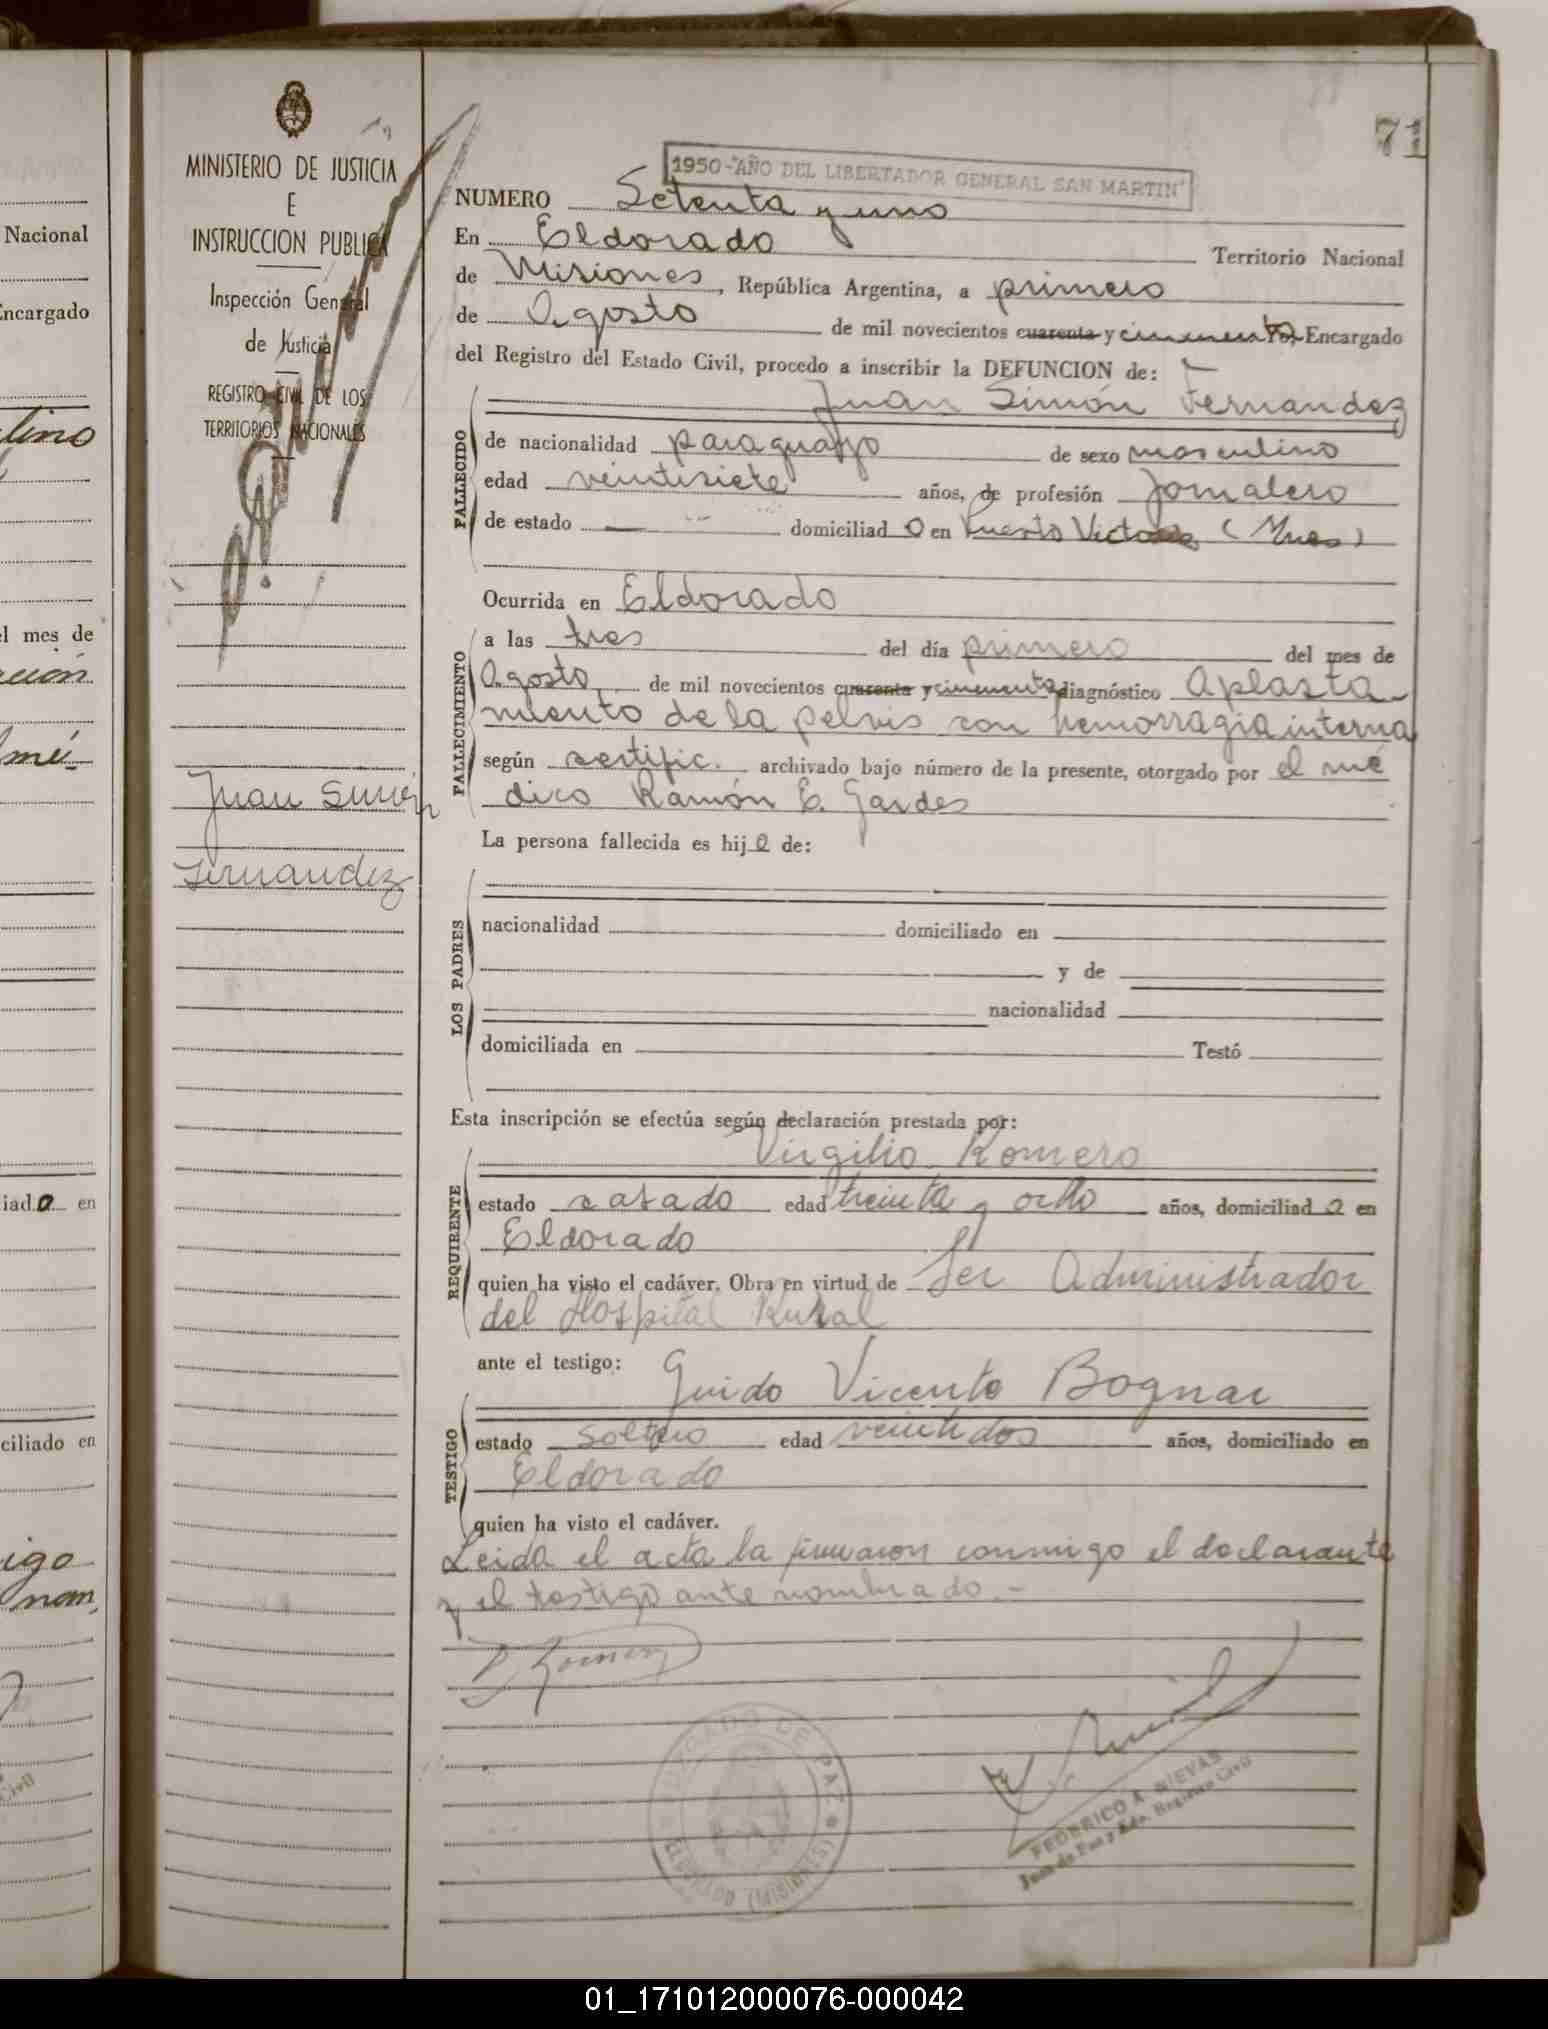 Nacional
Encargado
lino
el mes de
ción
mé-
iado en
ciliado en
igo
nom,
Civil
MINISTERIO DE JUSTICIA
E
INSTRUCCION PUBLICA
Inspección General
de Justicia
REGISTRO CIVIL DE LOS
TERRITORIOS NACIONALES
Juan Simón
Fernandez
71
1950-"AÑO DEL LIBERTADOR GENERAL SAN MARTIN"
NUMERO Setenta y uno
En Eldorado Territorio Nacional
de Misiones, República Argentina, a primero
de Agosto de mil novecientos cuarenta y cincuenta Yo, Encargado
del Registro del Estado Civil, procedo a inscribir la DEFUNCION de:
Juan Simón Fernandez
FALLECIDO
de nacionalidad paraguayo de sexo masculino
edad veintisiete años, de profesión Jornalero
de estado domiciliado en Puerto Victoria (Mnes)
FALLECIMIENTO
Ocurrida en Eldorado
a las tres del día primero del mes de
Agosto de mil novecientos cuarenta y cincuenta diagnóstico Aplasta-
miento de la pelvis con hemorragia interna
según certific. archivado bajo número de la presente, otorgado por el mé
dico Ramón E. Gardes
La persona fallecida es hijo de:
LOS PADRES
nacionalidad domiciliado en
y de
nacionalidad
domiciliada en Testó
Esta inscripción se efectúa según declaración prestada por:
Virgilio Romero
REQUIRENTE
estado casado edad treinta y ocho años, domiciliado en
Eldorado
quien ha visto el cadáver. Obra en virtud de Ser Administrador
del Hospital Rural
ante el testigo: Guido Vicente Bognar
TESTIGO
estado soltero edad veintidos años, domiciliado en
Eldorado
quien ha visto el cadáver.
Leida el acta la firmaron conmigo el declarante
y el testigo ante nombrado.-
V. Romero
JUZGADO DE PAZ
ELDORADO (MISIONES)
FEDERICO A. NIEVAS
Juez de Paz y Edo. Registro Civil
01_171012000076-000042